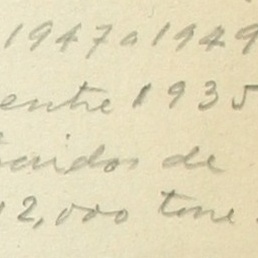 1947 a 1949
entre 1935
de
12,000 tone